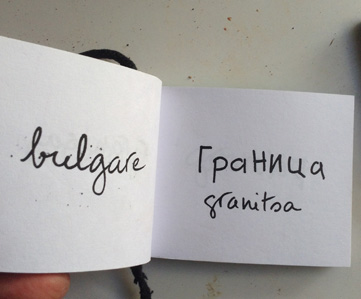 bulgare
Граница
granitsa